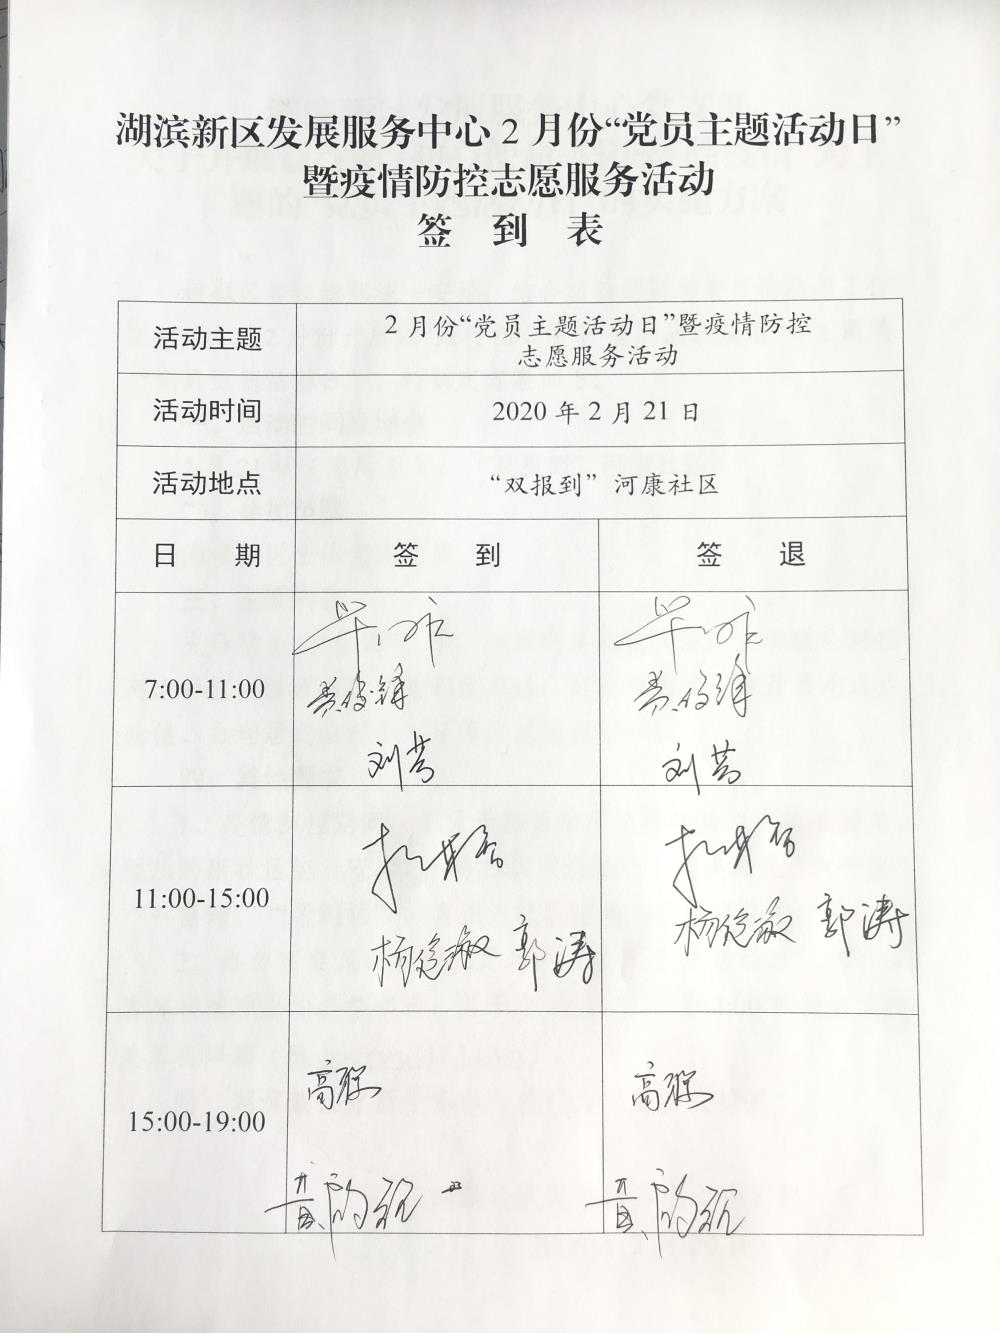 湖滨新区发展服务中心2月份“党员主题活动日”
暨疫情防控志愿服务活动
签 到 表
活动主题
2月份“党员主题活动日”暨疫情防控
志愿服务活动
活动时间
2020年2月21日
活动地点
“双报到”河康社区
日 期 签 到 签 退
7:00-11:00
刘芸 刘芸
11:00-15:00
郭涛 郭涛
15:00-19:00
高 高
黄 黄